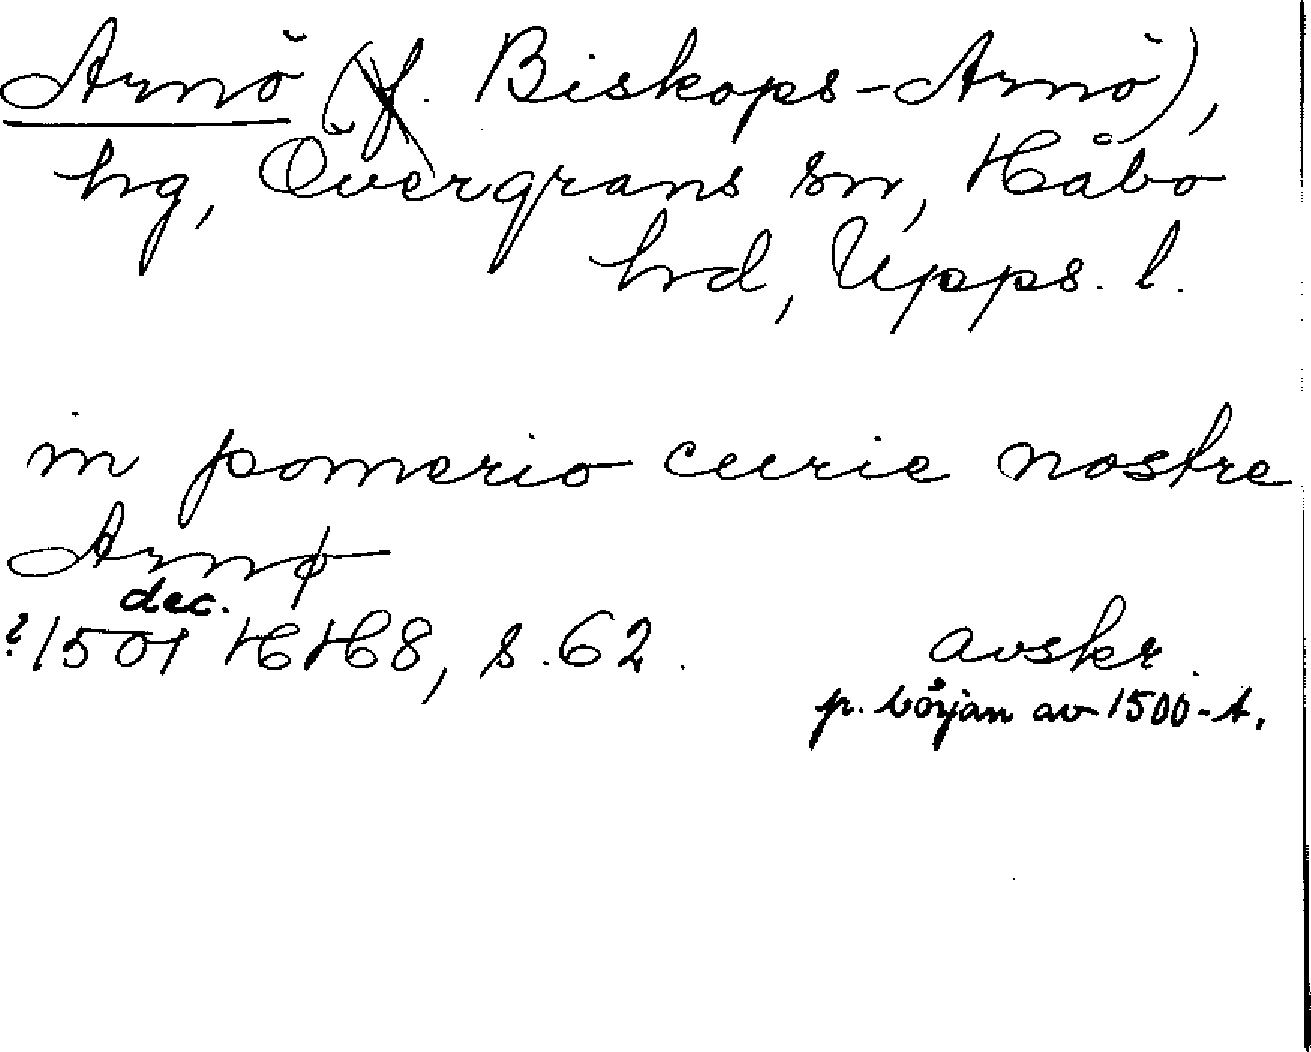 Arnö (f. Biskops-Arnö),
hg, Övergrans sn, Håbo
hd, Upps. l.
in pomerio curie nostre
Arnø
dec.
?1501 HH8, s. 62. avskr.
p. början av 1500-t.